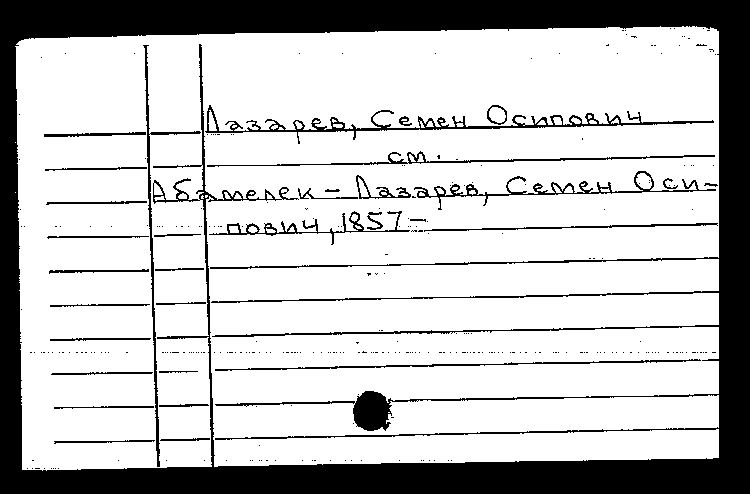 Лазарев, Семен Осипович
см.
Абамелек - Лазарев, Семен Оси=
пович, 1857-